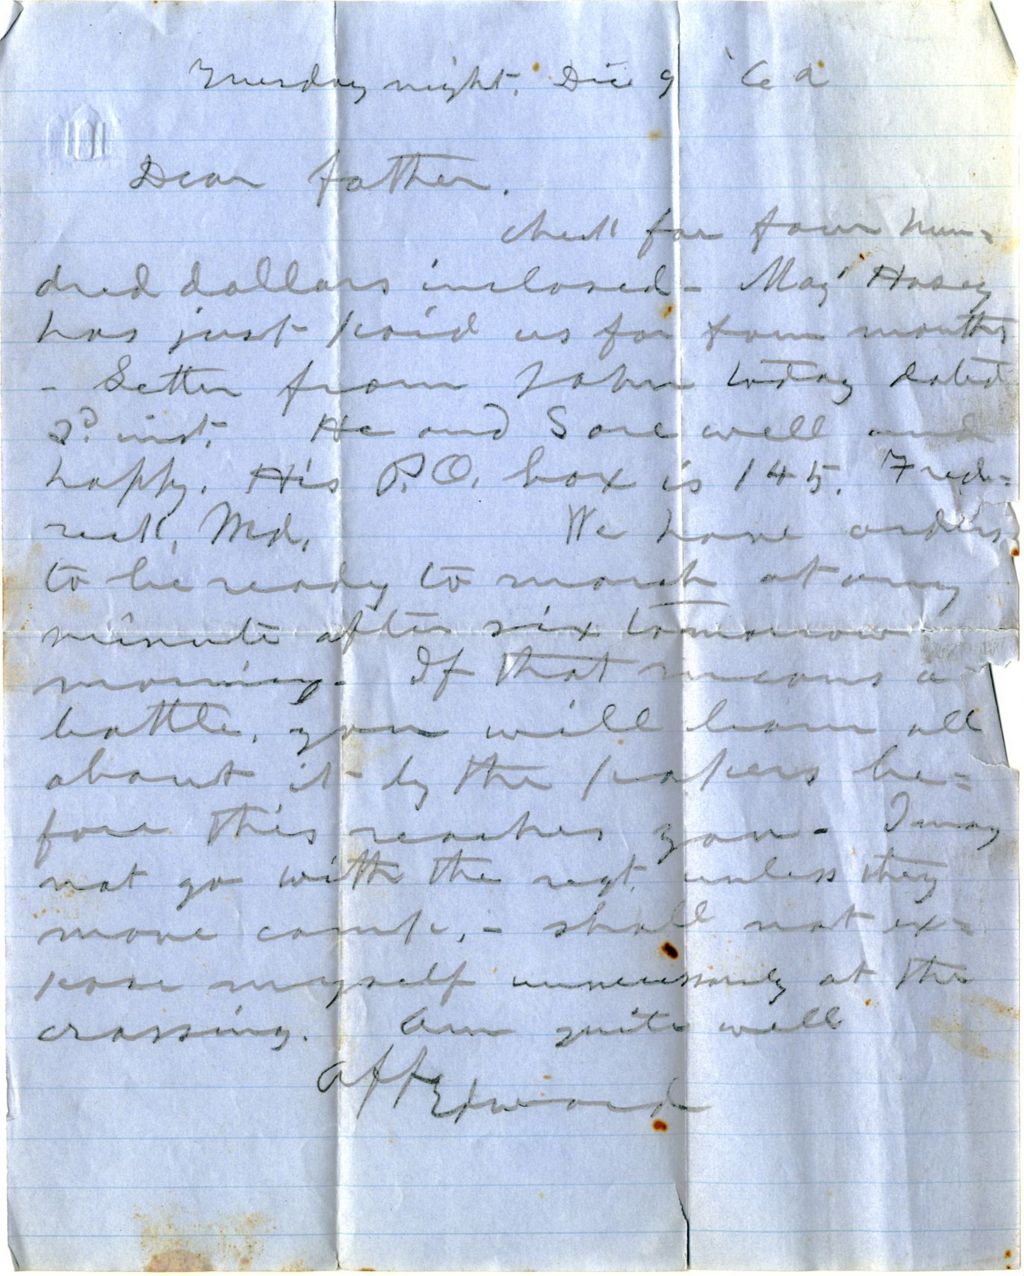 Tuesday night. Dec 9 '62
Dear father.
Check for four hun-
dred dollars inclosed - Maj Hosey
has just paid us for four months
- Letter from John today dated
2d inst. He and S are well and
happy. His P.O. box is 145. Fred-
rick, Md. We have orders
to be ready to march at any
minute after six tomorrow
morning. If that means a
battle, you will learn all
about it by the papers be-
fore this reaches you - I may
not go with the regt. unless they
move camp, - shall not ex-
pose myself unnecessarily at the
crossing. Am quite well
Aff Edward